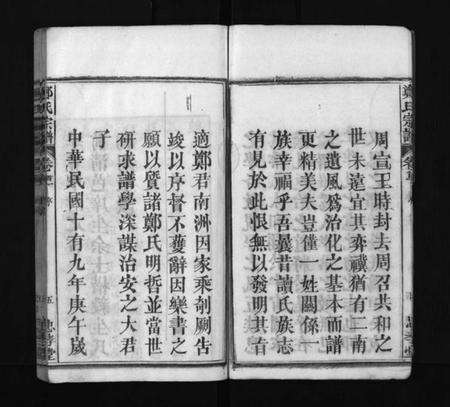 鄭氏宗譜
周宣王時封去周召共和之
世未遠宜其弈禩猶有二南
之遺風爲治化之基本而譜
更精美夫豈僅一姓關係一
族幸福乎吾曩昔讀氏族志
有見於此恨無以發明其旨
適鄭君南洲因家乘剞劂告
竣以序督不獲辭因樂書之
願以質諸鄭氏明哲並當世
研求譜學深謀治安之大君
子
中華民國十有九年庚午歲
鄭氏宗譜
序
五